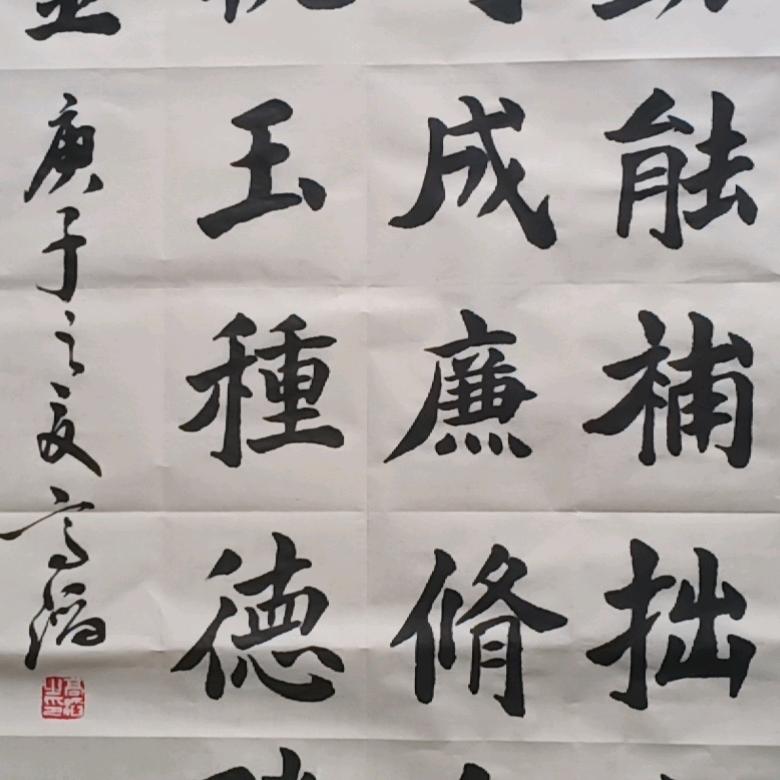 能補拙
成廉脩
玉種德
庚子之夏高滔